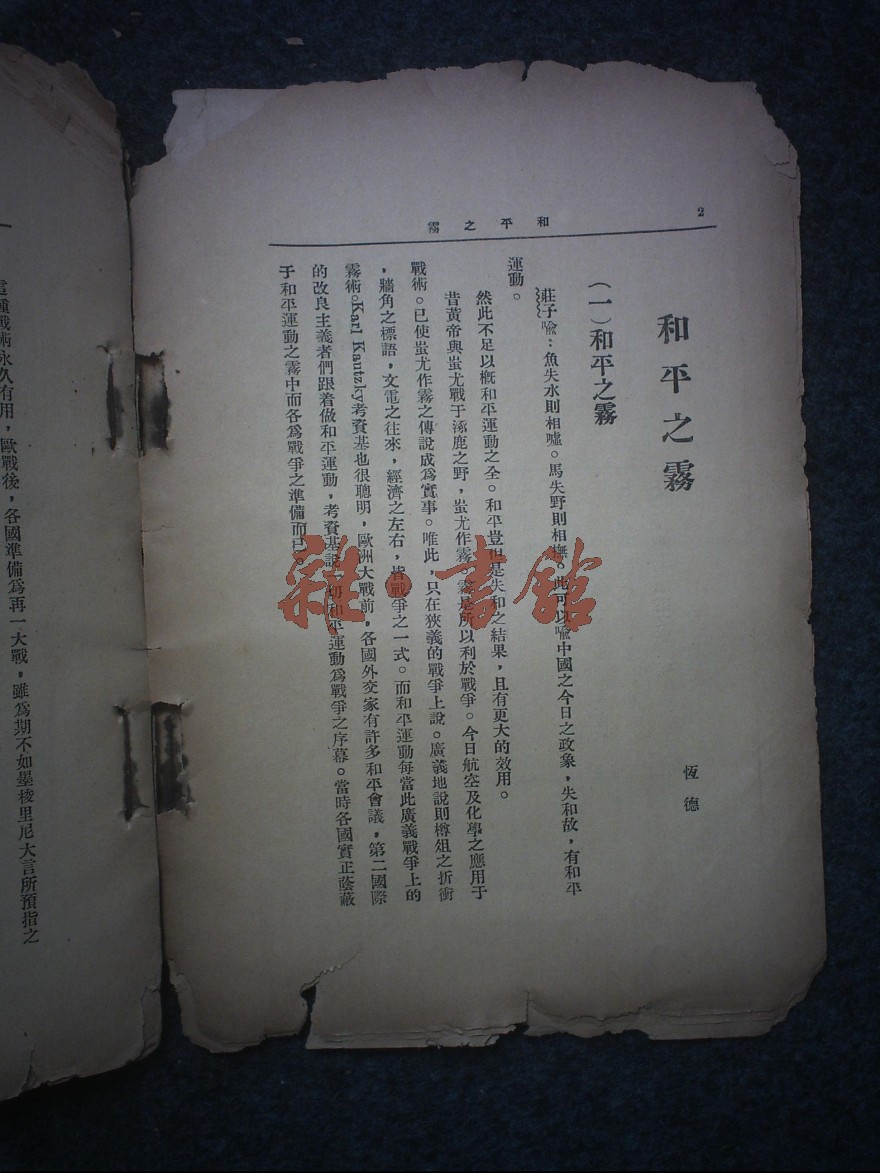 2
和平之霧
和平之霧
恆德
(一)和平之霧
莊子喩：魚失水則相噓。馬失野則相撫。此可以喩中國之今日之政象，失和故，有和平
運動。
然此不足以槪和平運動之全。和平豈但是失和之結果，且有更大的效用。
昔黃帝與蚩尤戰于涿鹿之野，蚩尤作霧。霧是所以利於戰爭。今日航空及化學之應用于
戰術。已使蚩尤作霧之傳說成爲實事。唯此，只在狹義的戰爭上說。廣義地說則樽俎之折衝
，牆角之標語，文電之往來，經濟之左右，皆戰爭之一式。而和平運動每當此廣義戰爭上的
霧術。Karl Kautzky考資基也很聰明，歐洲大戰前，各國外交家有許多和平會議，第二國際
的改良主義者們跟着做和平運動，考資基說一切和平運動爲戰爭之序幕。當時各國實正蔭蔽
于和平運動之霧中而各爲戰爭之準備而已。
這種戰術永久有用，歐戰後，各國準備爲再一大戰，雖爲期不如墨梭里尼大言所預指之
雜·書館